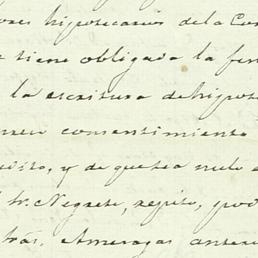 ores hipotecarios de la Co
tiene obligada la fin
la escritura de hipot
consentimiento
isto, y de que sea nulo
Sr. Negrete, repito, pod
trás. Amenazas anter